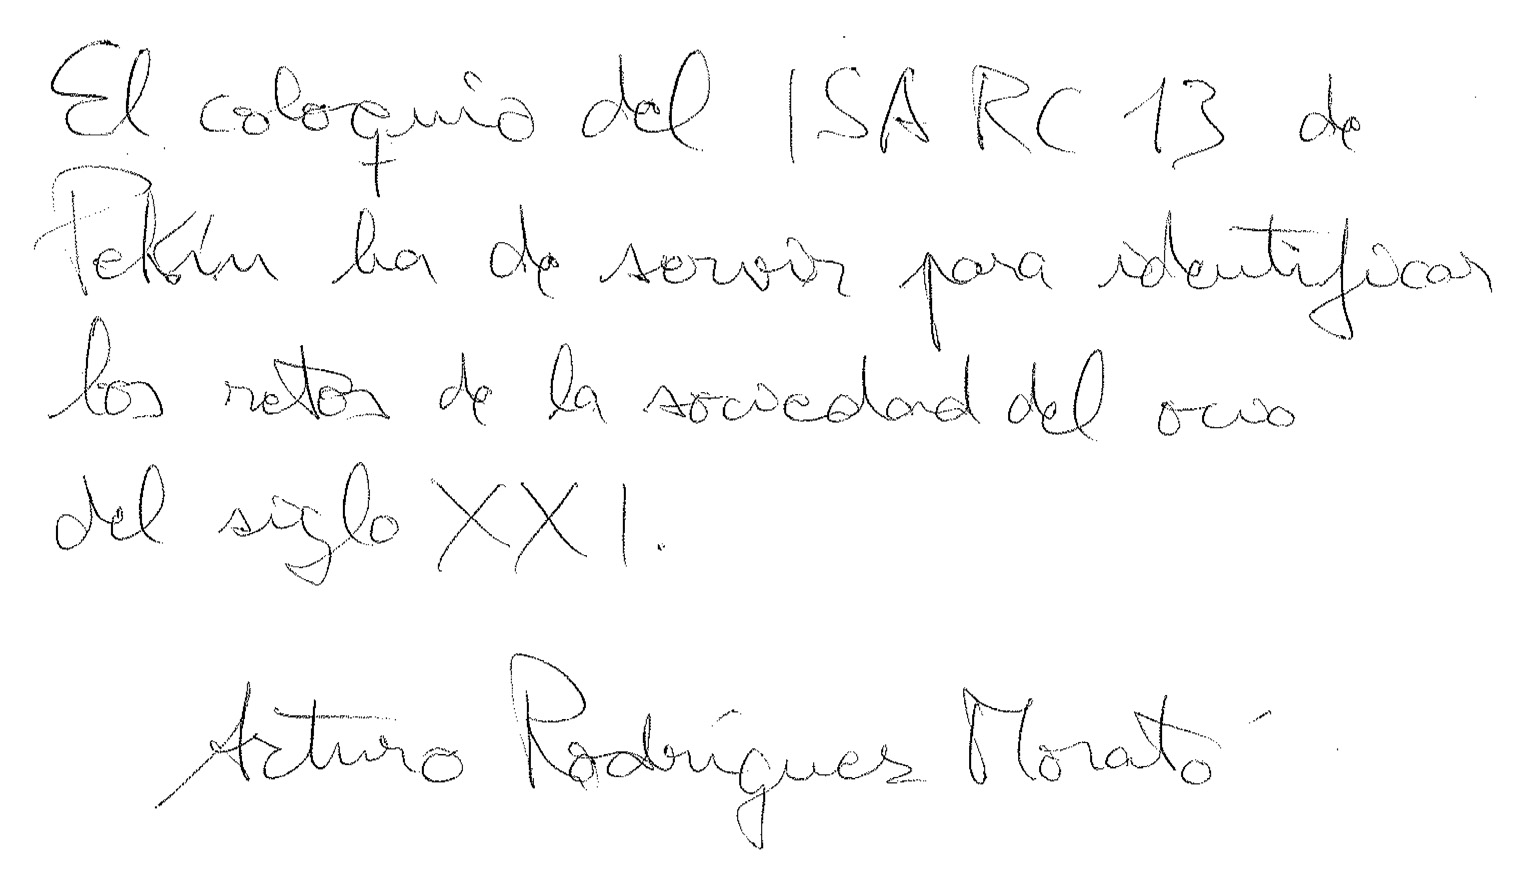 El coloquio del ISA RC 13 de
Pekín ha de servir para identificar
los retos de la sociedad del ocio
del siglo XXI.
Arturo Rodríguez Morató